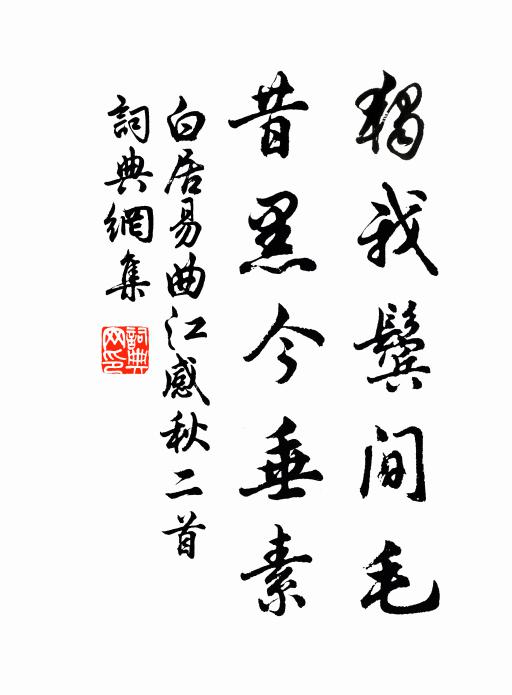 獨我鬢間毛
昔黑今垂素
白居易曲江感秋二首
詞典網集
詞典
网印